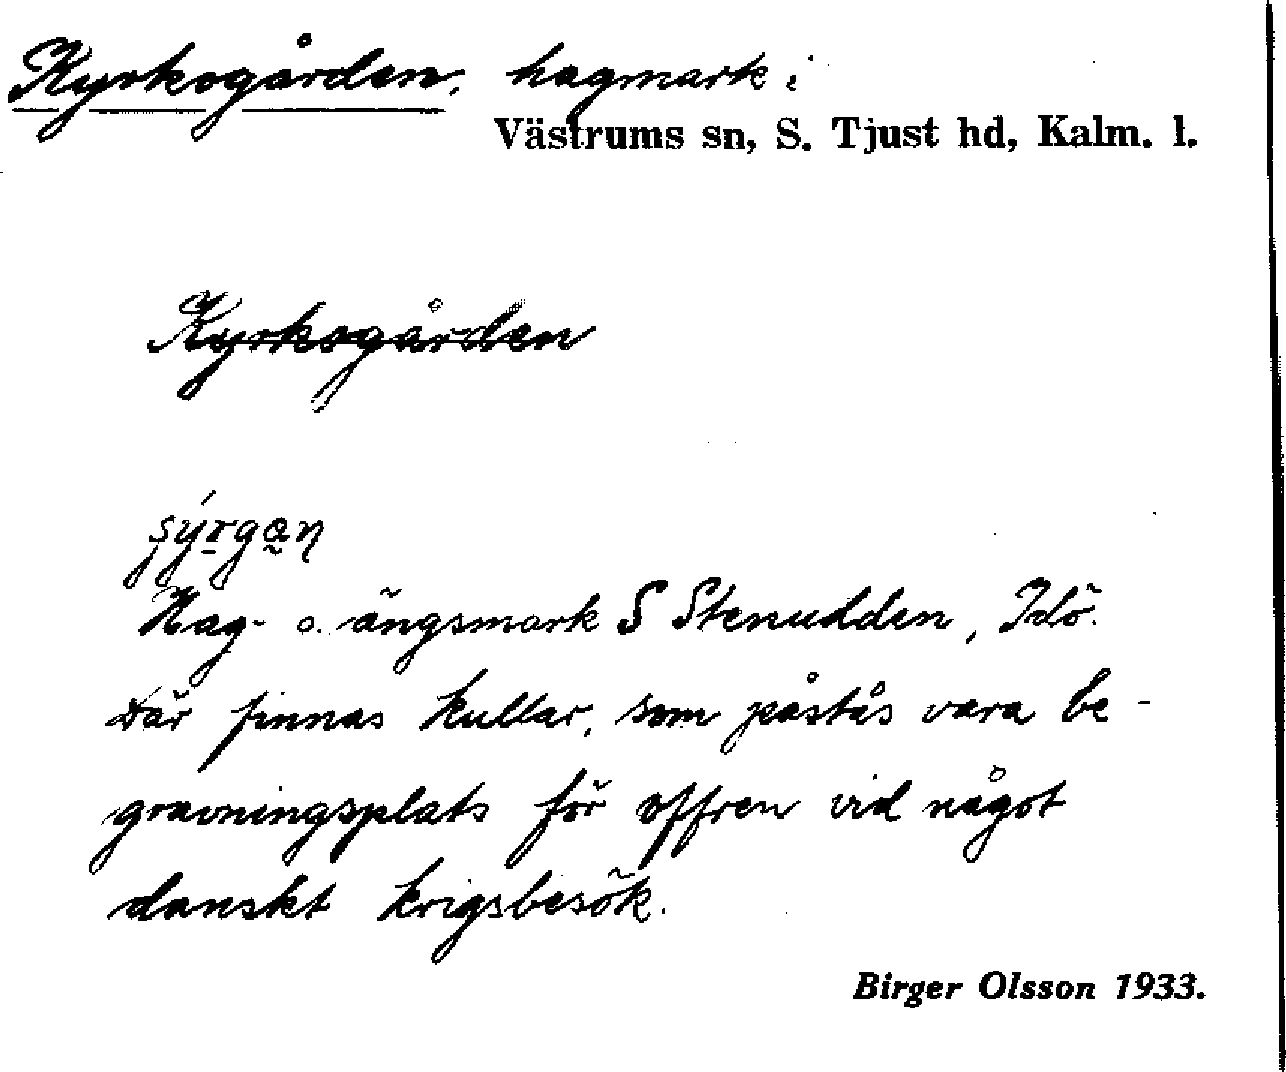 Kyrkogården, hagmark i
Västrums sn, S. Tjust hd, Kalm. l.
Kyrkogården
Hag- o. ängsmark S Stenudden, Idö.
Där finnas kullar, som påstås vara be-
gravningsplats för offren vid något
danskt krigsbesök.
Birger Olsson 1933.